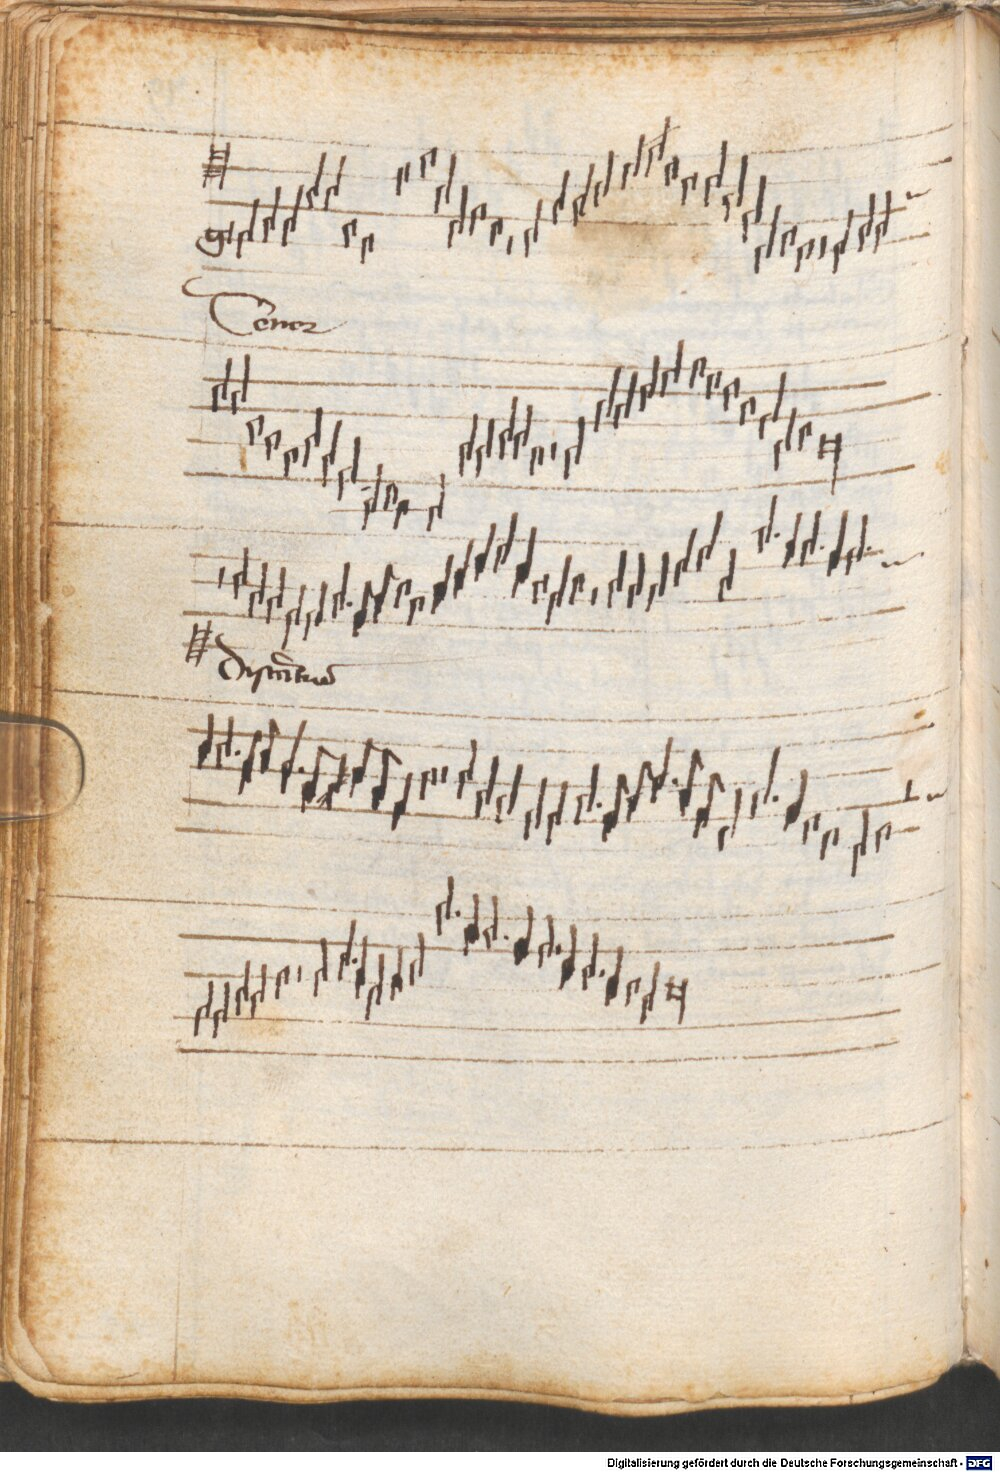 Tenor
Discantus
Digitalisierung gefördert durch die Deutsche Forschungsgemeinschaft - DFG